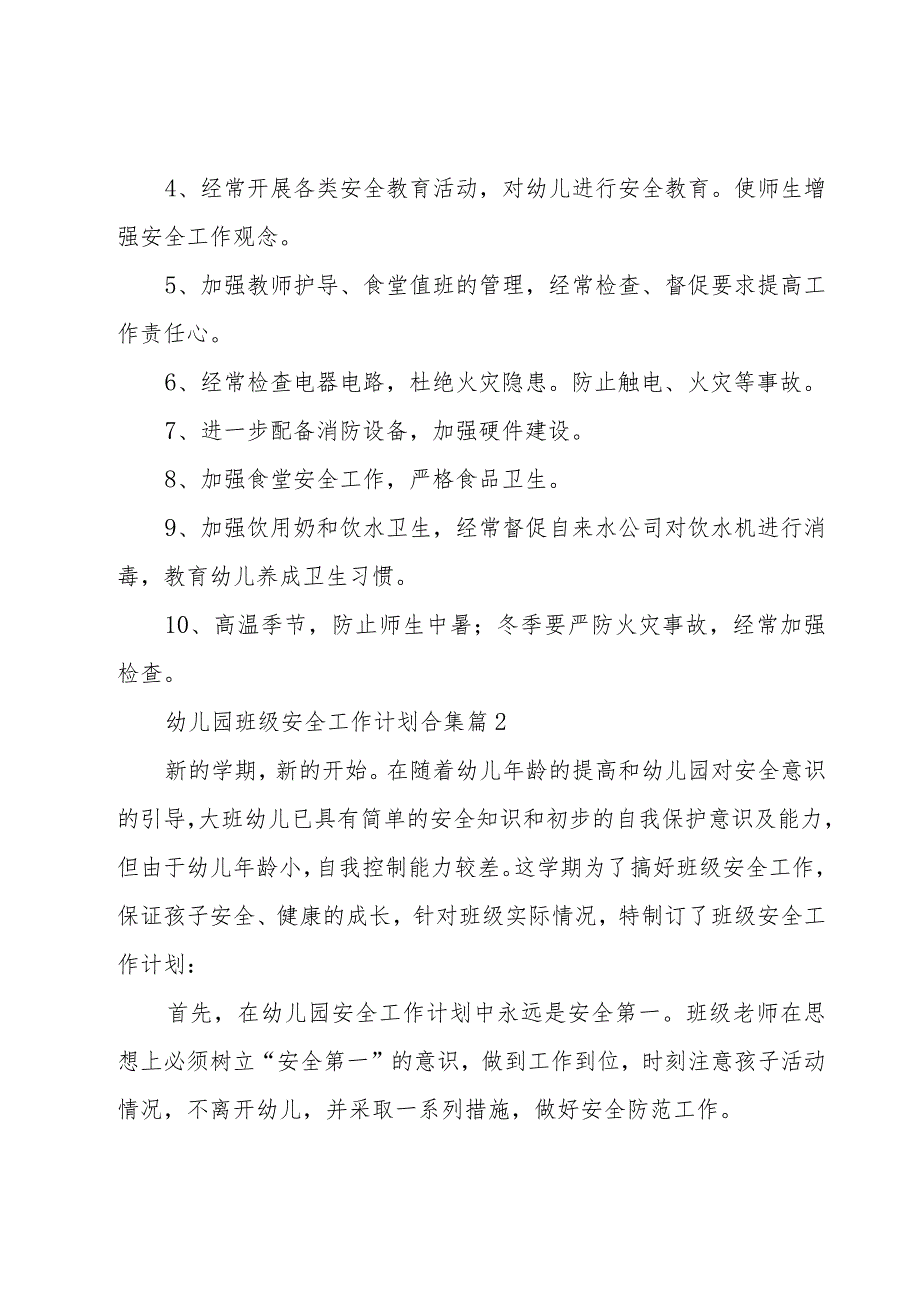 4、经常开展各类安全教育活动，对幼儿进行安全教育。使师生增
强安全工作观念。
5、加强教师护导、食堂值班的管理，经常检查、督促要求提高工
作责任心。
6、经常检查电器电路，杜绝火灾隐患。防止触电、火灾等事故。
7、进一步配备消防设备，加强硬件建设。
8、加强食堂安全工作，严格食品卫生。
9、加强饮用奶和饮水卫生，经常督促自来水公司对饮水机进行消
毒，教育幼儿养成卫生习惯。
10、高温季节，防止师生中暑；冬季要严防火灾事故，经常加强
检查。
幼儿园班级安全工作计划合集篇2
新的学期，新的开始。在随着幼儿年龄的提高和幼儿园对安全意识
的引导，大班幼儿已具有简单的安全知识和初步的自我保护意识及能力，
但由于幼儿年龄小，自我控制能力较差。这学期为了搞好班级安全工作，
保证孩子安全、健康的成长，针对班级实际情况，特制订了班级安全工
作计划：
首先，在幼儿园安全工作计划中永远是安全第一。班级老师在思
想上必须树立“安全第一”的意识，做到工作到位，时刻注意孩子活动
情况，不离开幼儿，并采取一系列措施，做好安全防范工作。